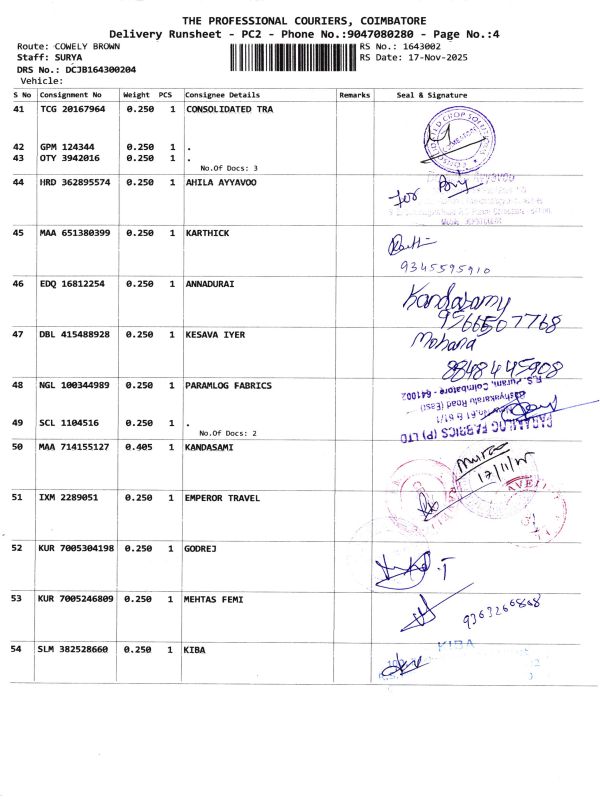 THE PROFESSIONAL COURIERS, COIMBATORE
Delivery Runsheet - PC2 - Phone No.:9047080280 - Page No.:4
Route: COWELY BROWN RS No.: 1643002
Staff: SURYA RS Date: 17-Nov-2025
DRS No.: DCJB164300204
Vehicle:
S No Consignment No Weight PCS Consignee Details Remarks Seal & Signature
41 TCG 20167964 0.250 1 CONSOLIDATED TRA
42 GPM 124344 0.250 1 .
43 OTY 3942016 0.250 1 .
No.Of Docs: 3
44 HRD 362895574 0.250 1 AHILA AYYAVOO
for
45 MAA 651380399 0.250 1 KARTHICK
9345595910
46 EDQ 16812254 0.250 1 ANNADURAI
Kandasamy
9566507768
47 DBL 415488928 0.250 1 KESAVA IYER
Mohana
8848445908
48 NGL 100344989 0.250 1 PARAMLOG FABRICS
R.S. Puram, Coimbatore - 641002
49 SCL 1104516 0.250 1 .
No.Of Docs: 2
FABRICS (P) LTD
50 MAA 714155127 0.405 1 KANDASAMI
17/11/25
51 IXM 2289051 0.250 1 EMPEROR TRAVEL
52 KUR 7005304198 0.250 1 GODREJ
53 KUR 7005246809 0.250 1 MEHTAS FEMI
9363266868
54 SLM 382528660 0.250 1 KIBA
KIBA